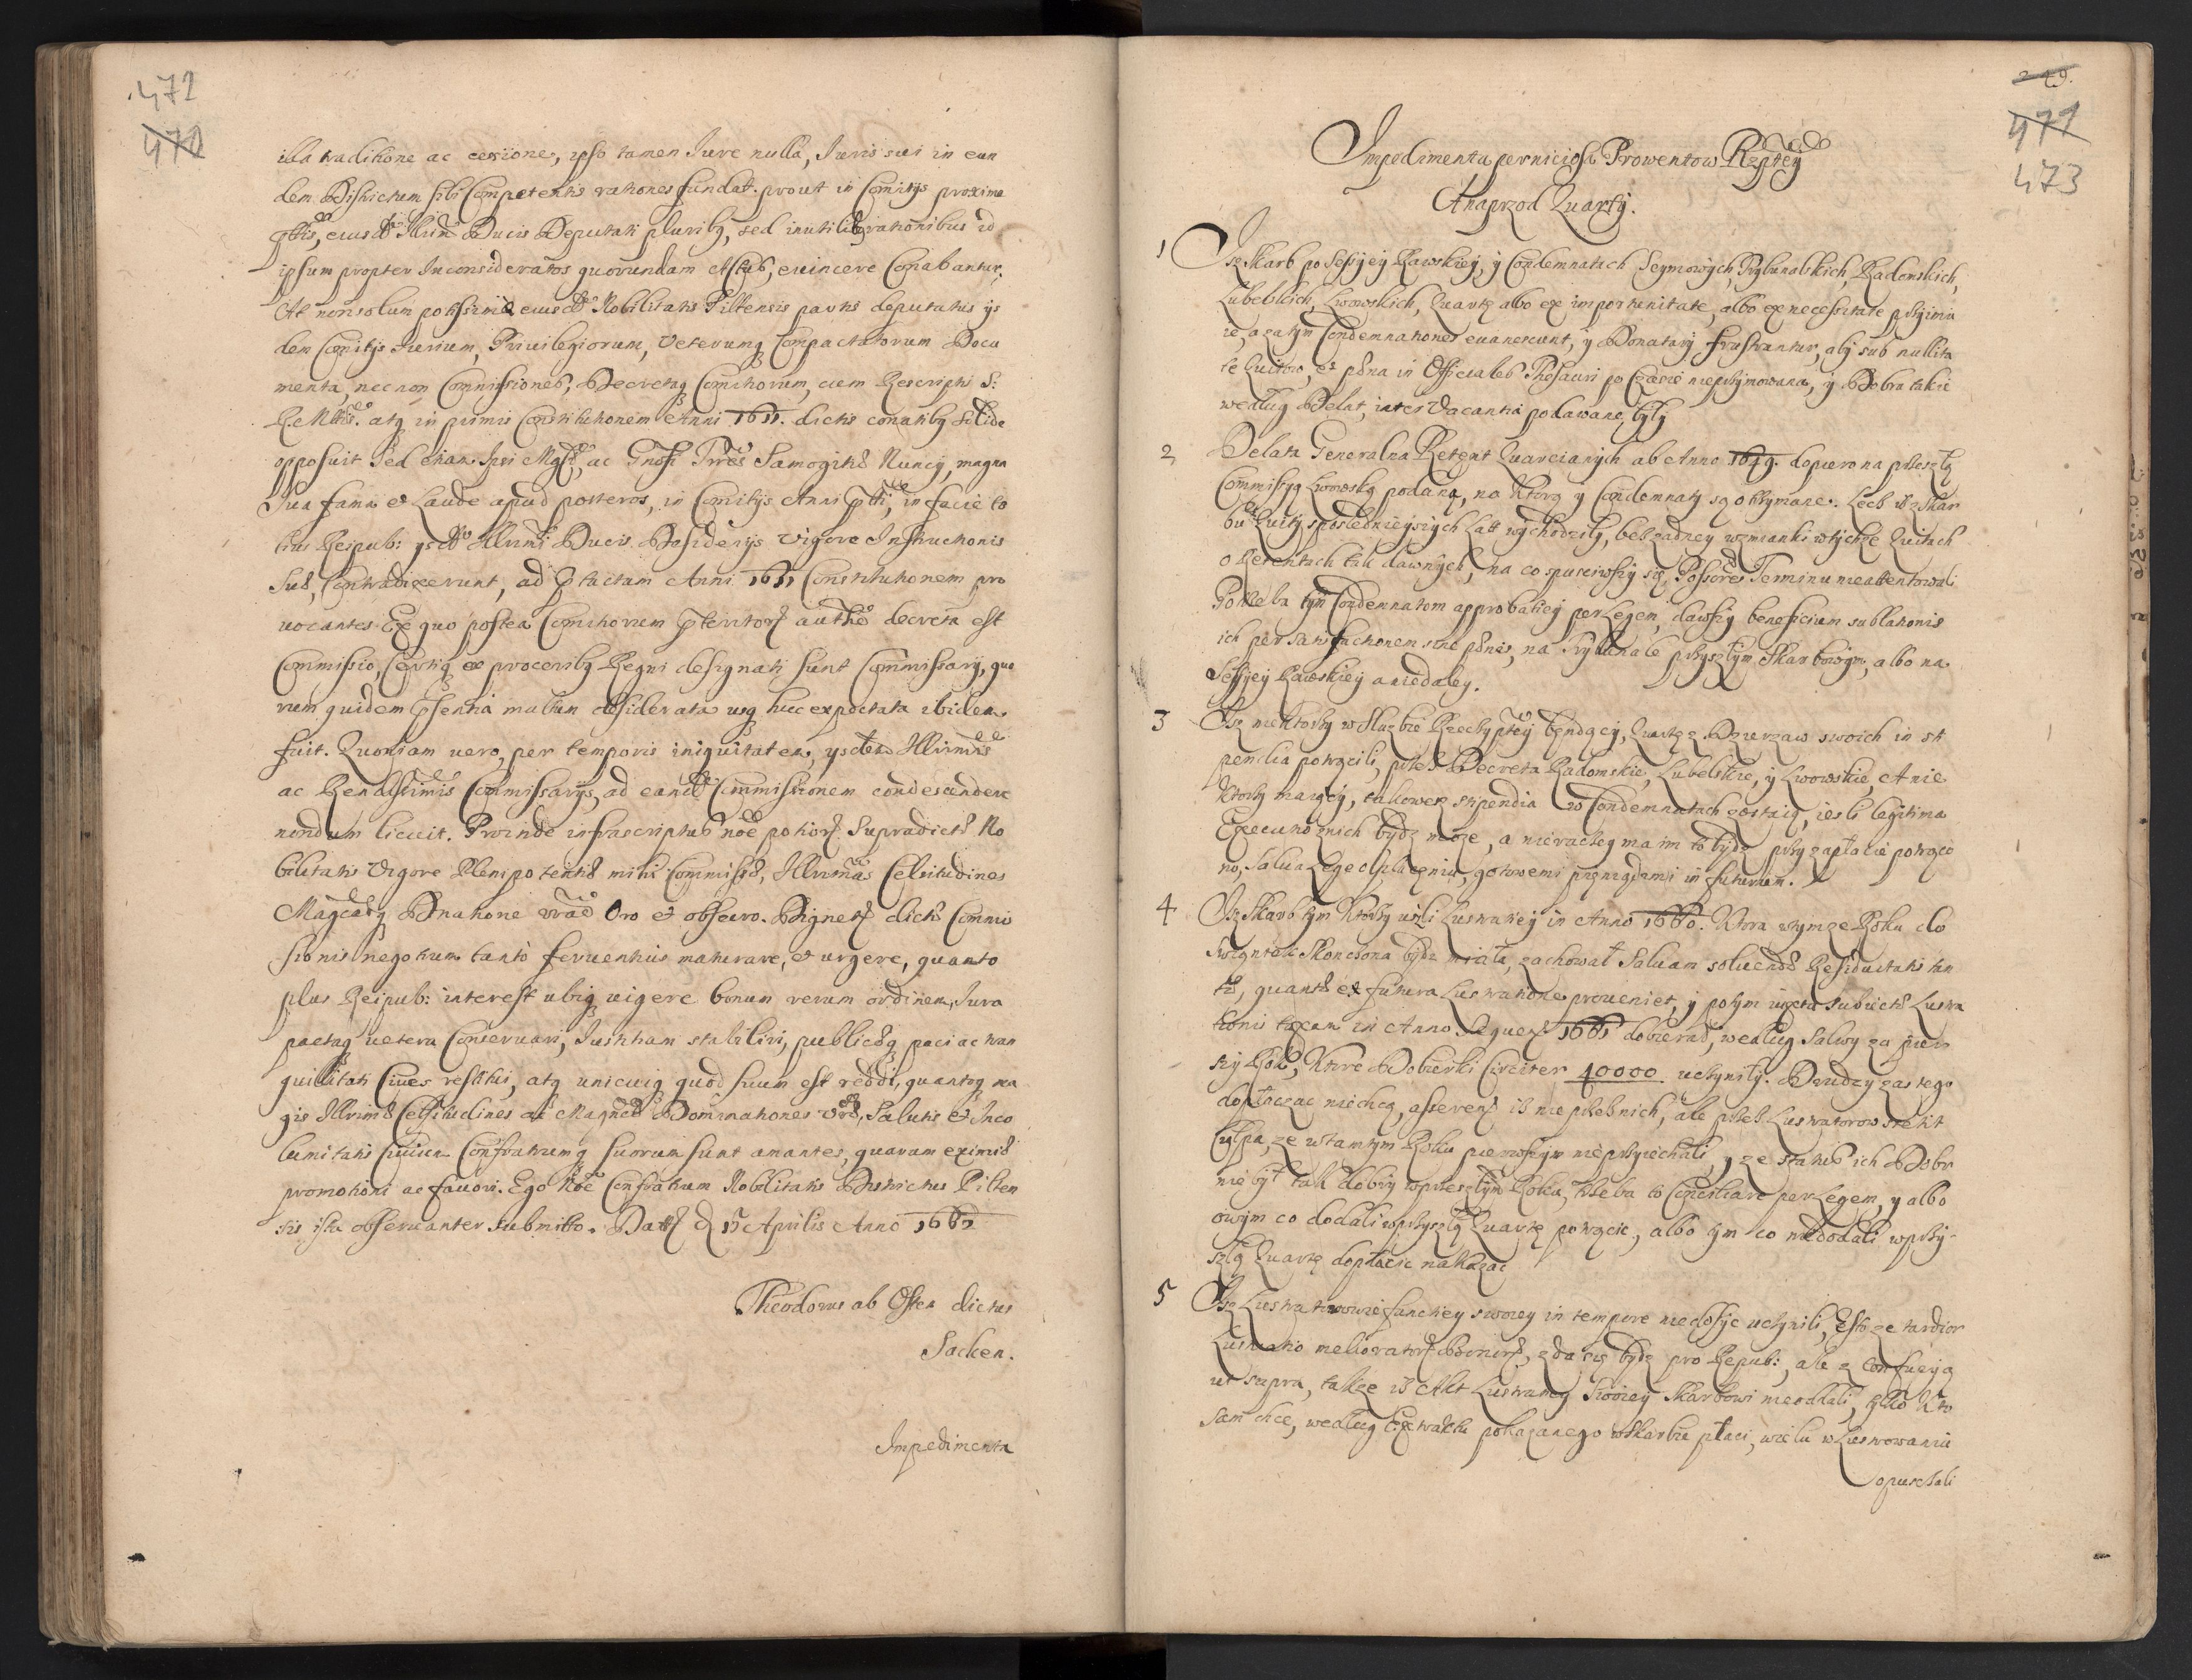 472
470
illa traditione ac cessione, ipso tamen Iure nulla, Iuris sui in eun
dem Districtum sibi Competentis rationes fundat. prout in Comitijs proxime
ipsum propter Inconsideratos quorundam Actus, euincere Conabantur;
At non solum potissimū eiusdē Nobilitatis Piltensis partis deputatus ijs
dem Comitijs Iurium, Priuilegiorum, Veterumq Compactatorum Docu
menta, nec non Commissiones, Decretaq Comitiorum, cum Rescriptis S:
R. Mttis. atq in primis Constitutionem Anni 1611. dictis conatibq solide
opposuit Sed etiam Ipsi Magci, ac Gnosi Trrēs Samogitiæ Nuncij, magna
Sua fama et Laude apud posteros, in Comitijs Anni pntis, in facie to
tius Reipub: ijsdē Illrmi Ducis Desiderijs Vigore Instructionis
Suæ, Contradixerunt, ad Pactatam Anni 1611 Constitutionem pro
uocantes. Ex quo postea Comitiorum pteritorū authē decreta est
Commissio, Certiq ex proceribq Regni designati sunt Commissarij, quo
rum quidem psentia multum desiderata usq huc expectata ibidem
fuit. Quoniam uero, per temporis iniquitatem, ysdem Illrmis
ac Rendissimis Commissarijs, ad eandē Commissionem condescendere
nondum licuit. Proinde infrascriptus nōe potiorū Supradictæ No
bilitatis Vigore Plenipotentiæ mihi Commissæ, Illrmas Celsitudines
Magcasq Dnatione vrād Oro et obsecro. Dignetū dictæ Commis
sionis negotium tanto feruentius maturare, et urgere, quanto
plus Reipub: interest ubiq uigere bonum rerum ordinem, Iura
pactaq uetera Conseruari, Iustitiam stabiliri, publicæq paci ac tran
quillitati Ciues restitui, atq unicuiq quod suum est reddi, quantoq ma
gis Illrmæ Celsitudines ac Magncæ Dominationes Vræ, Salutis et Inco
lumitatis Ciuium Confratrumq suorum sunt amantes, quarum eximiæ
promotioni ac fauori. Ego Nōe Confratrum Nobilitatis Districtus Pilten
sis ista obseruanter submitto. Datt d 15 Aprilis Anno 1662
Theodorus ab Osten dictus
Sacken.
Impedimenta
249.
471
473
Impedimenta perniciosa Prowentow Rzptey
A naprzod Quarty.
1 Isz Skarb po Sessyey Rawskiey, y Condemnatach Seymowych, Trybunalskich, Radomskich,
Lubelskich, Lwowskich, Quartę albo ex importunitate, albo ex necessitate przyimu
ie, a zatym Condemnationes euanescunt, y Donatarij frustrantur, aby sub nullita
te Quitow, et pœna in Officiales Thesauri po Czasie nieprzyimowana, y Dobra takie
według Delat, inter Vacantia podawane były
2 Delata Generalna Retent Quarcianych ab Anno 1649. dopiero na przeszłą
Commissyą Lwowską podana, na ktorą y Condemnaty są otrzymane. Lecz isz Skar
bu Quity z poslednieyszych Lat wychodziły, bez zadney wzmianki w tychze Quitach
o Retentach tak dawnych, na co spusciwszy się, Possores Terminu nie attentowali
Potrzeba tym Condemnatom approbatiey per Legem, dawszy beneficium sublationis
ich per satisfactionem sine pœnis, na Trybunale przyszłym Skarbowym, albo na
Sessyey Rawskiey a niedaley.
3 Isz niektorzy w Słuzbie Rzechyptey będący, Quartę z Dzierzaw swoich in sti
pendia potrącili, przez Decreta Radomskie, Lubelskie, y Lwowskie, A nie
ktorzy maiący, takowez stipendia w Condemnatach zostaią, iesli legitima
Executio z nich bydz moze, a nieraczey ma im to bydz przy zapłacie potrąco
no, Salua Lege Płacenia, gotowemi pieniądzmi in futurum.
4 Isz Skarb tym ktorzy uszli Lustratiey in Anno 1660. Ktora w tymze Roku do
Swiąntek Skonczona bydz miała, zachował Saluam soluendæ Residuitatis tan
tæ, quantæ ex futura Lustratione proueniet, y potym iuxta Subiectæ Lustra
tionis taxam in Anno Sequen. 1661 dobierał, według Salwy za pier
szy Rok, Ktore Dobierki Circiter 40000 uczyniły. Drudzy zas tego
dopłaczac niechcą, asserens isz nie przez nich, ale przez Lustratorow stetit
Culpa, ze w tamtym Roku pierwszym nie przyiechali, y ze status ich Dobr
nie był tak dobry w przeszłym Roku, trzeba to Conciliare per Legem, y albo
owym co dodali w przyszłą Quartę potrącic, albo tym co niedodali w przy-
szłą Quartę dopłacic nakazac
5 Isz Lustratorowie functiey swoiey in tempore niedosyc uczynili, Esto ze tardior
Lustratio melioratorū Bonorū, zda się bydz pro Repub:, ale z Confusyą
ut supra, takze isz Akt Lustratiey Swoiey Skarbowi nieoddali, tylko kto
sam chce, według Extraktu pokazanego w Skarbie płaci, wielu w Lustrowaniu
opuschali